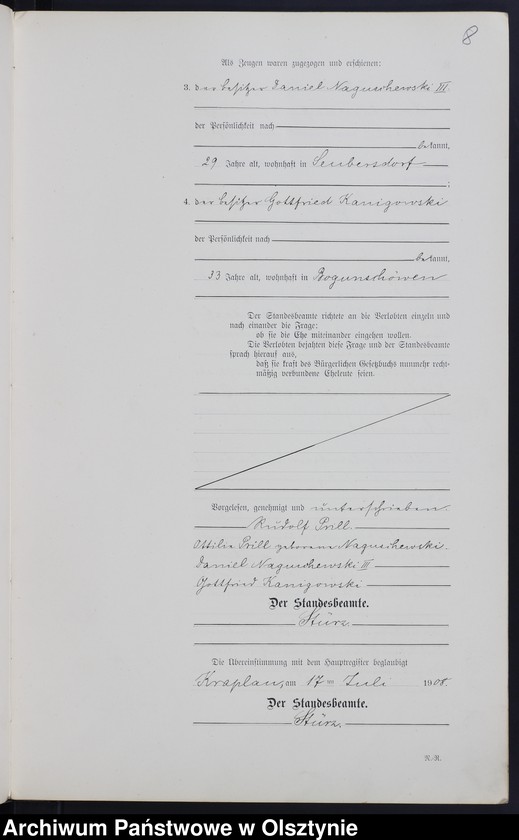 8
Als Zeugen waren zugezogen und erschienen:
3. der Besitzer Daniel Naguschewski III.
der Persönlichkeit nach
bekannt,
29 Jahre alt, wohnhaft in Seubersdorf
;
4. der Besitzer Gottfried Kanigowski
der Persönlichkeit nach
bekannt,
33 Jahre alt, wohnhaft in Rogunschöwen
Der Standesbeamte richtete an die Verlobten einzeln und
nach einander die Frage:
ob sie die Ehe miteinander eingehen wollen.
Die Verlobten bejahten diese Frage und der Standesbeamte
sprach hierauf aus,
daß sie kraft des Bürgerlichen Gesetzbuchs nunmehr recht-
mäßig verbundene Eheleute seien.
Vorgelesen, genehmigt und unterschrieben
Rudolf Prill.
Ottilie Prill geborene Naguschewski.
Daniel Naguschewski III
Gottfried Kanigowski
Der Standesbeamte.
Stürz.
Die Übereinstimmung mit dem Hauptregister beglaubigt
Kraplau, am 17 ten Juli 1908.
Der Standesbeamte.
Stürz.
R.-R.
Archiwum Państwowe w Olsztynie